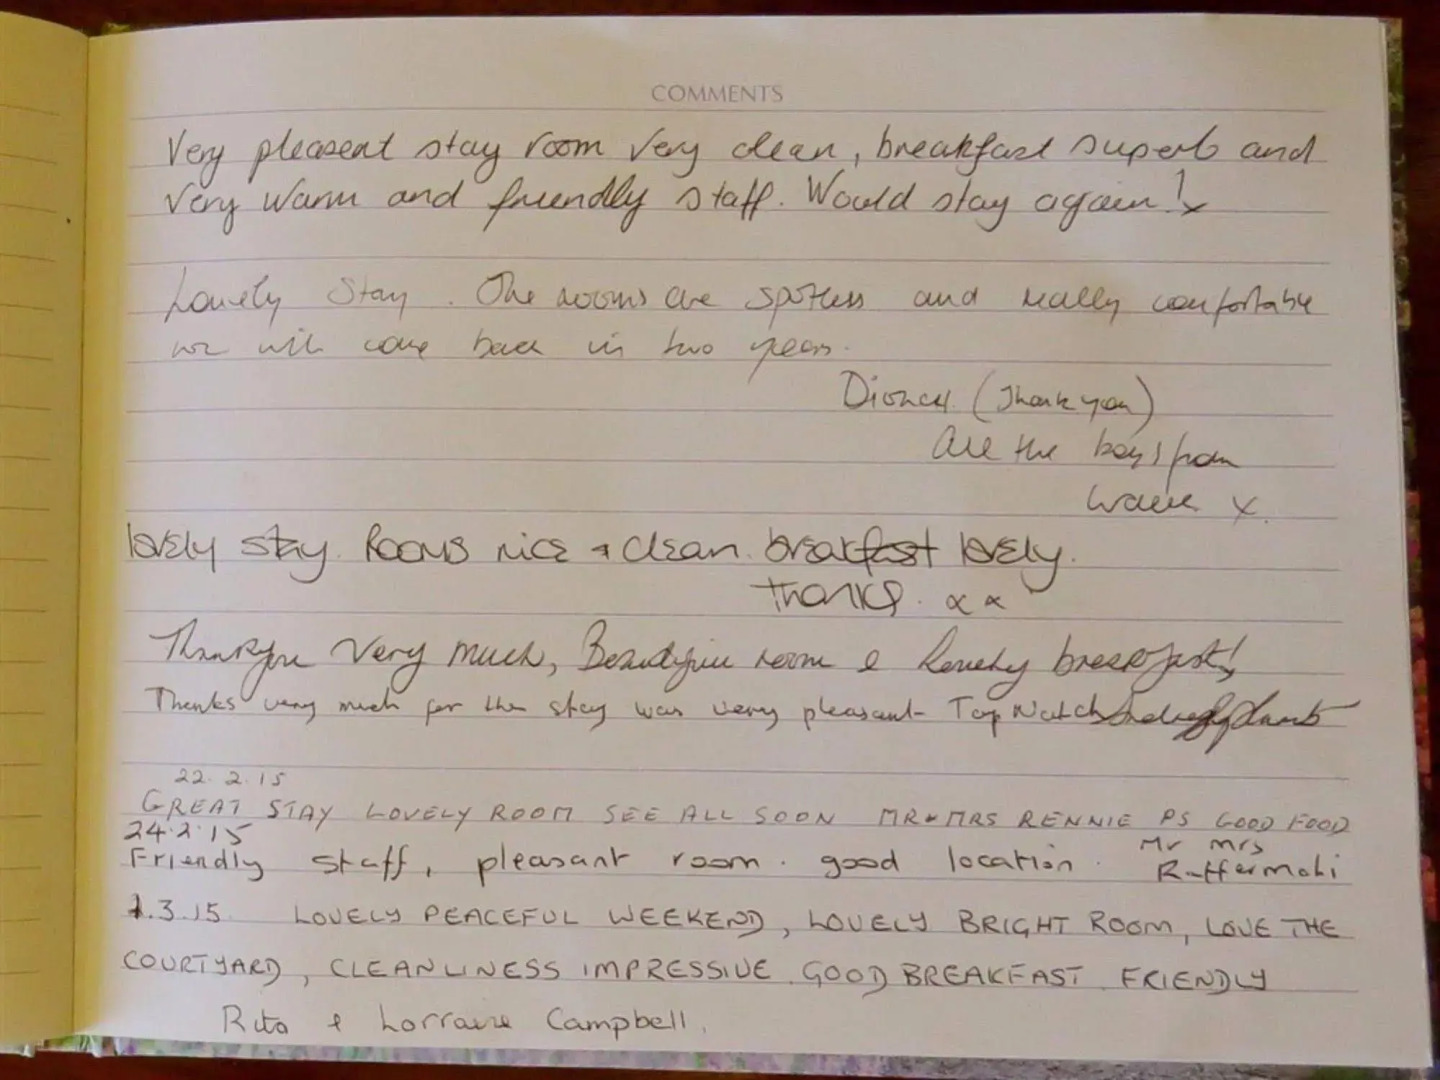 COMMENTS
Very pleasent stay room very clean, breakfast superb and
very warm and friendly staff. Would stay again! x
Lovely Stay. The rooms are spotless and really comfortable
we will come back in two years.
(Thank you)
the boys from
x.
lovely stay. Rooms nice & clean. breakfast lovely.
thanks. x x
Thankyou very much, Beautyfull room & lovely breakfast!
Thanks very much for the stay was very pleasant Top Notch
22.2.15
GREAT STAY LOVELY ROOM SEE ALL SOON MR & MRS RENNIE PS GOOD FOOD
24.2.15
Friendly staff, pleasant room. good location. Mr mrs
1.3.15 LOVELY PEACEFUL WEEKEND, LOVELY BRIGHT ROOM, LOVE THE
COURTYARD, CLEANLINESS IMPRESSIVE. GOOD BREAKFAST FRIENDLY
Rita & Lorraine Campbell.